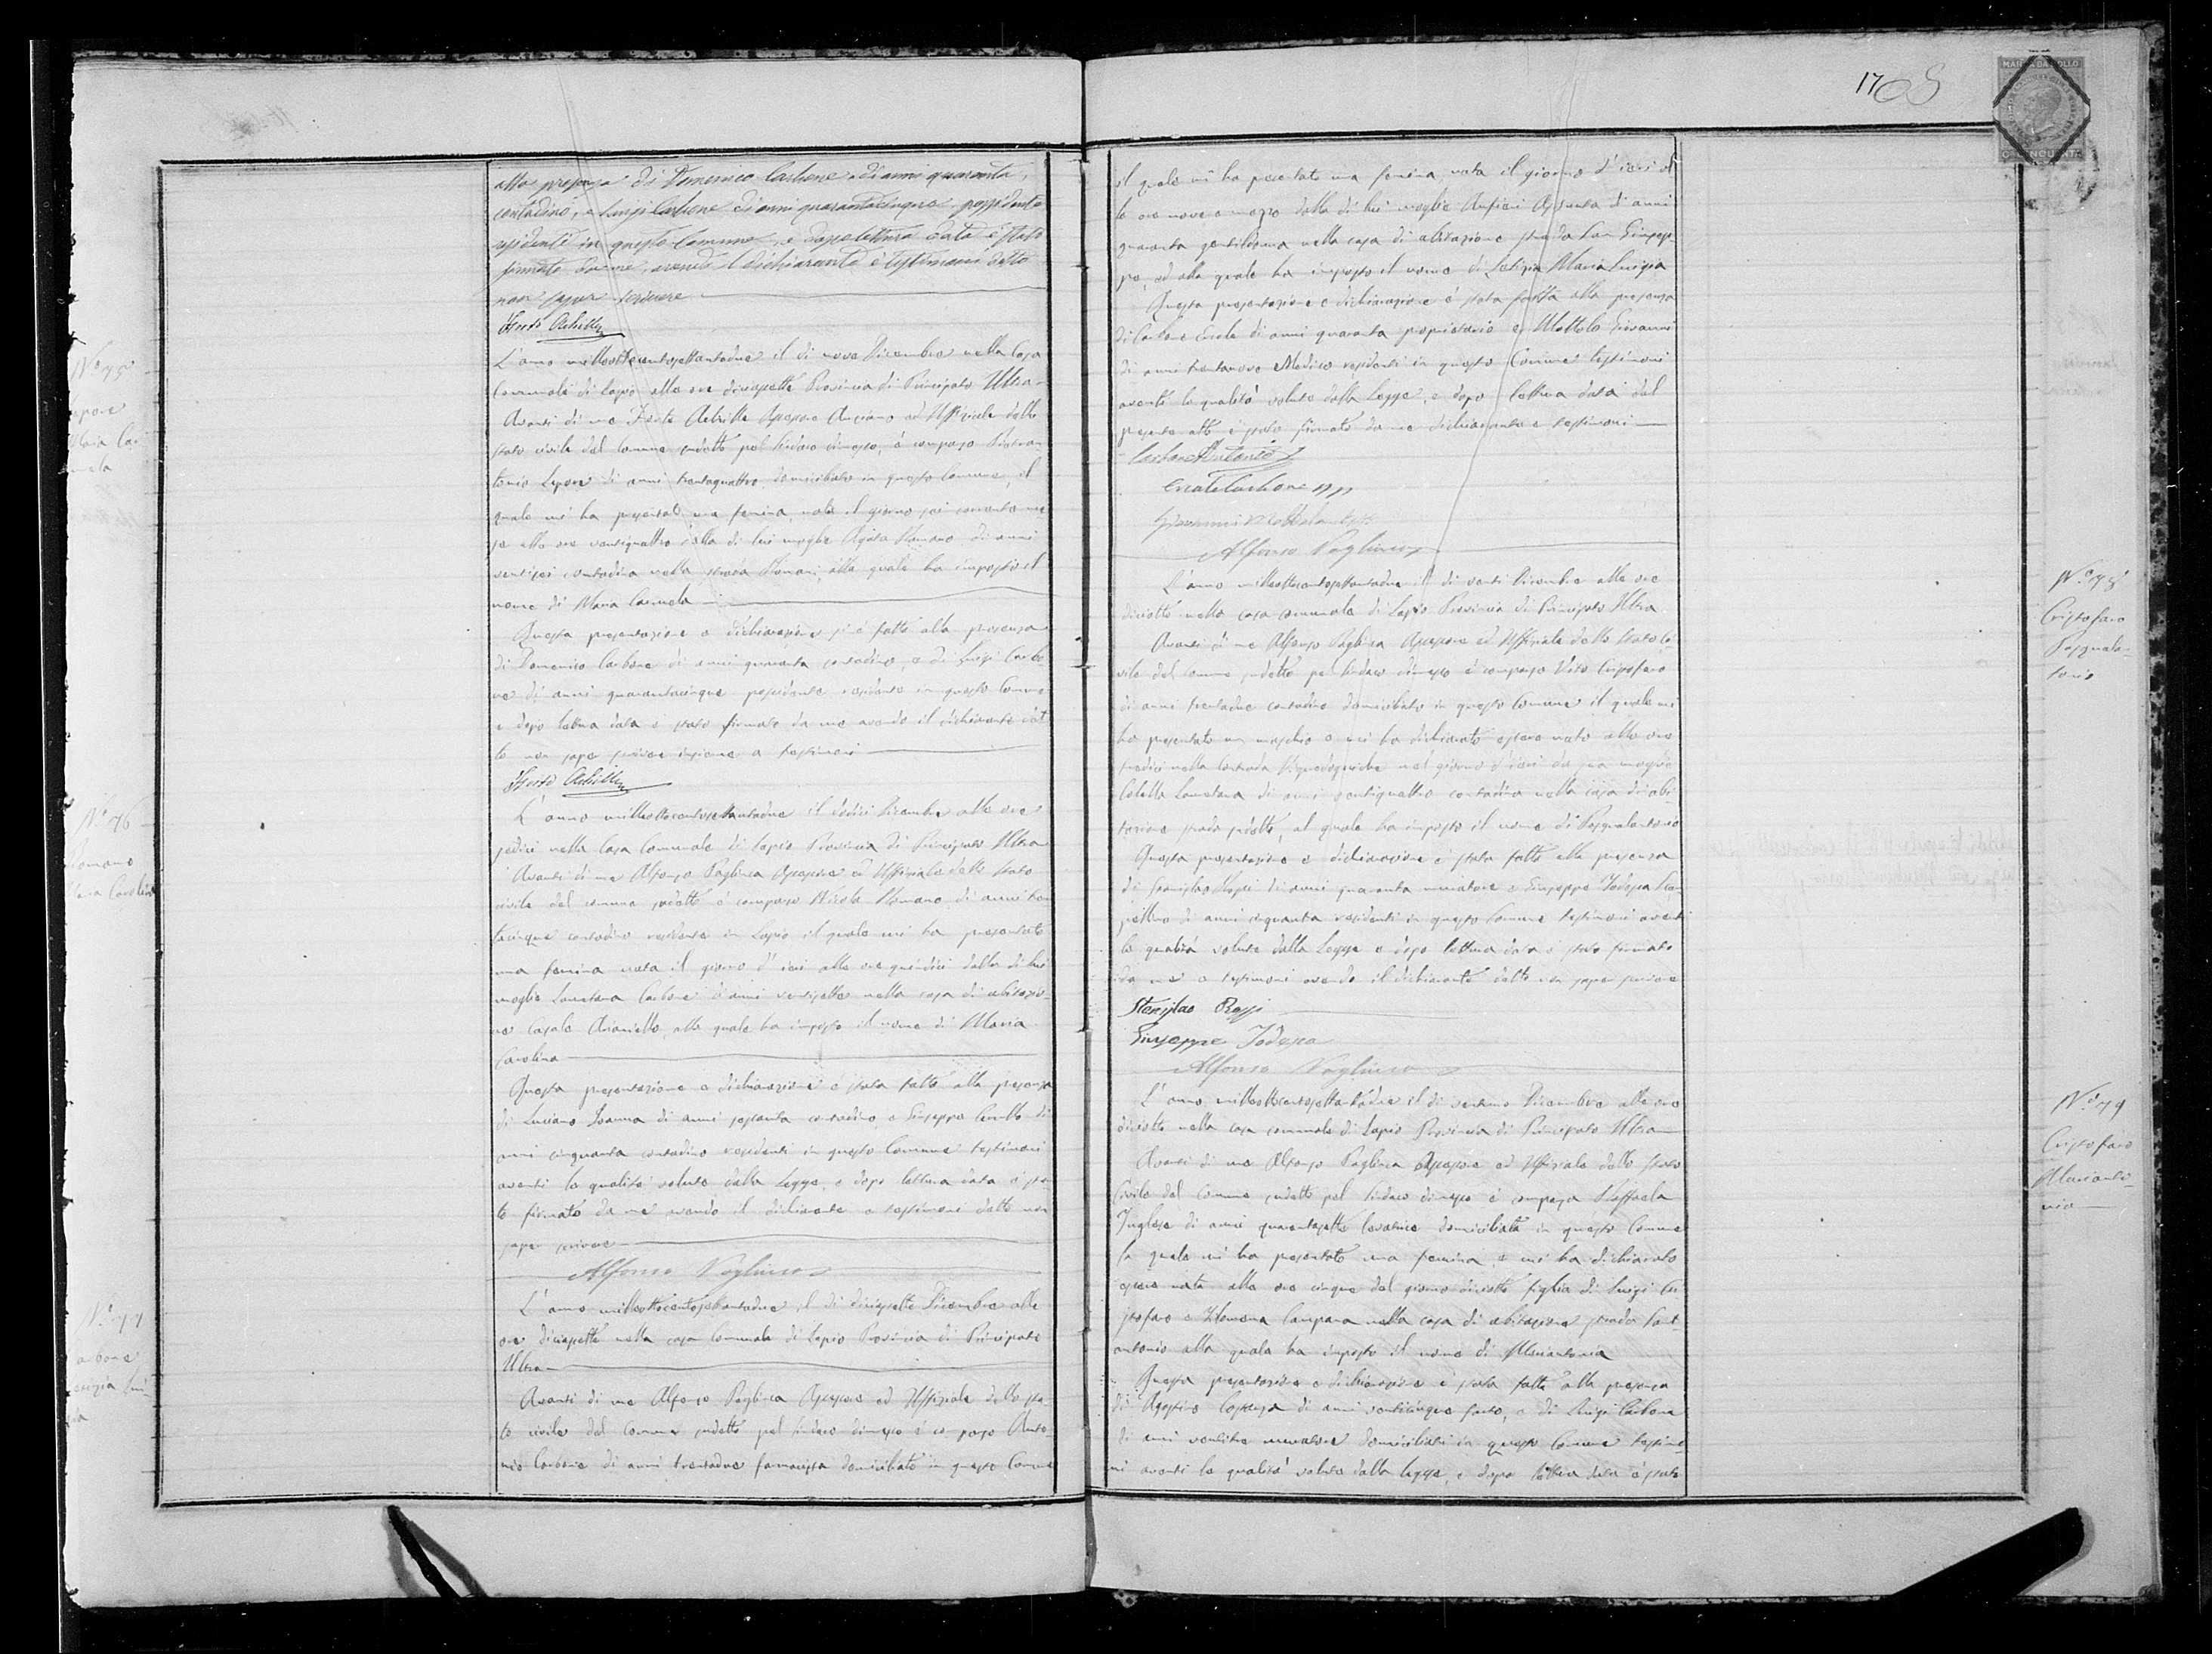 alla presenza di Domenico Carbone di anni quaranta,
contadino, e Luigi Carbone di anni quarantacinque, possidente
residenti in questo Comune, e dopo lettura data è stato
firmato da me, avendo il dichiarante e testimoni detto
non saper scrivere
Achille
N.° 75
Lepore
Maria Car
mela
L'anno milleottocentosettantadue il dì nove Dicembre nella Casa
Comunale di Lapio alle ore diciassette Provincia di Principato Ultra
Avanti di me Achille Assessore Anziano ed Uffiziale dello
stato civile del Comune sudetto pel Sindaco dimesso, è comparso
Lepore di anni trentaquattro domiciliato in questo Comune, il
quale mi ha presentato una femina, nata il giorno sei corrente me
se alle ore ventiquattro dalla di lui moglie Agata Romano di anni
ventisei contadina nella strada Romani, alla quale ha imposto il
nome di Maria Carmela
Questa presentazione e dichiarazione si è fatta alla presenza
di Domenico Carbone di anni quaranta contadino, e di Luigi Carbo
ne di anni quarantacinque possidente residente in questo Comune
e dopo lettura data è stato firmato da me avendo il dichiarante det
to non saper scrivere insieme a testimoni
Achille
N.° 76
Romano
Maria Carolina
L'anno milleottocentosettantadue il dodici Dicembre alle ore
sedici nella Casa Comunale di Lapio Provincia di Principato Ultra
Avanti di me Alfonso Paglinca Assessore ed Uffiziale dello stato
civile del comune sudetto è comparso Nicola Romano di anni tren
tacinque contadino residente in Lapio il quale mi ha presentato
una femina nata il giorno d'ieri alle ore quindici dalla di lui
moglie Loretana Carbone d'anni ventisette nella casa di abitazio
ne Casale Arianiello, alla quale ha imposto il nome di Maria
Carolina
Questa presentazione e dichiarazione è stata fatta alla presenza
di Luciano di anni sessanta contadino e Giuseppe di
anni cinquanta contadino residenti in questo Comune testimoni
aventi le qualità volute dalla Legge, e dopo lettura data è sta
to firmato da me avendo il dichiarante e testimoni detto non
saper scrivere
Alfonso Paglinca
N.° 77
Carbone
Letizia Lui
L'anno milleottocentosettantadue il dì diciassette Dicembre alle
ore diciassette nella casa Comunale di Lapio Provincia di Principato
Ultra
Avanti di me Alfonso Paglinca Assessore ed Uffiziale dello sta
to civile del Comune sudetto pel Sindaco dimesso è comparso Anto
nio Carbone di anni trentadue farmacista domiciliato in questo Comune
1708
MARCA DA BOLLO
il quale mi ha presentato una femina nata il giorno d'ieri al
le ore nove e mezzo dalla di lui moglie Assunta di anni
quaranta gentildonna nella casa di abitazione strada San Giusep
pe, ed alla quale ha imposto il nome di Letizia Maria Luigia
Questa presentazione e dichiarazione è stata fatta alla presenza
di Carbone Ercole di anni quaranta proprietario e Mottola Giovanni
di anni trentanove Medico residenti in questo Comune testimoni
aventi le qualità volute dalla Legge, e dopo lettura data del
presente atto è stato firmato da me dichiarante e testimoni
Carbone Antonio
Ercole Carbone
Giovanni Mottola
Alfonso Paglinca
N.° 78
Cristofaro
Pasqualan
tonio
L'anno milleottocentosettantadue il dì venti Dicembre alle ore
diciotto nella casa comunale di Lapio Provincia di Principato Ultra
Avanti di me Alfonso Paglinca Assessore ed Uffiziale dello stato ci
vile del comune sudetto pel Sindaco dimesso è comparso Vito Cristofaro
di anni trentadue contadino domiciliato in questo Comune il quale mi
ha presentato un maschio e mi ha dichiarato essere nato alle ore
tredici nella Contrada nel giorno d'ieri da sua moglie
Colella Loretana di anni ventiquattro contadina nella casa di abi
tazione strada sudetta, al quale ha imposto il nome di Pasqualantonio
Questa presentazione e dichiarazione è stata fatta alla presenza
di Stanislao Rossi di anni quaranta muratore e Giuseppe Todesca
di anni cinquanta residenti in questo Comune testimoni aventi
le qualità volute dalla Legge e dopo lettura data è stato firmato
da me e testimoni avendo il dichiarante detto non saper scrivere
Stanislao Rossi
Giuseppe Todesca
Alfonso Paglinca
N.° 79
Cristofaro
Marianto
nia
L'anno milleottocentosettantadue il dì ventuno Dicembre alle ore
diciotto nella casa comunale di Lapio Provincia di Principato Ultra
Avanti di me Alfonso Paglinca Assessore ed Uffiziale dello stato
Civile del Comune sudetto pel Sindaco dimesso è comparsa Raffaela
Inglese di anni quarantasette levatrice domiciliata in questo Comune
la quale mi ha presentato una femina, e mi ha dichiarato
essere nata alle ore cinque del giorno diciotto figlia di Luigi Cri
stofaro e Filomena Campana nella casa di abitazione strada Sant
antonio alla quale ha imposto il nome di Mariantonia
Questa presentazione e dichiarazione è stata fatta alla presenza
di Agostino Costanza di anni venticinque sarto, e di Luigi Carbone
di anni ventitre muratore domiciliati in questo Comune testimo
ni aventi le qualità volute dalla legge, e dopo lettura data è stato